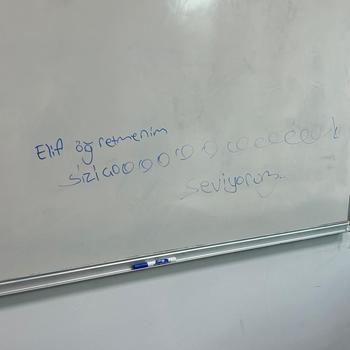 Elif öğretmenim
sizi çooooooooooooook
seviyoruz..